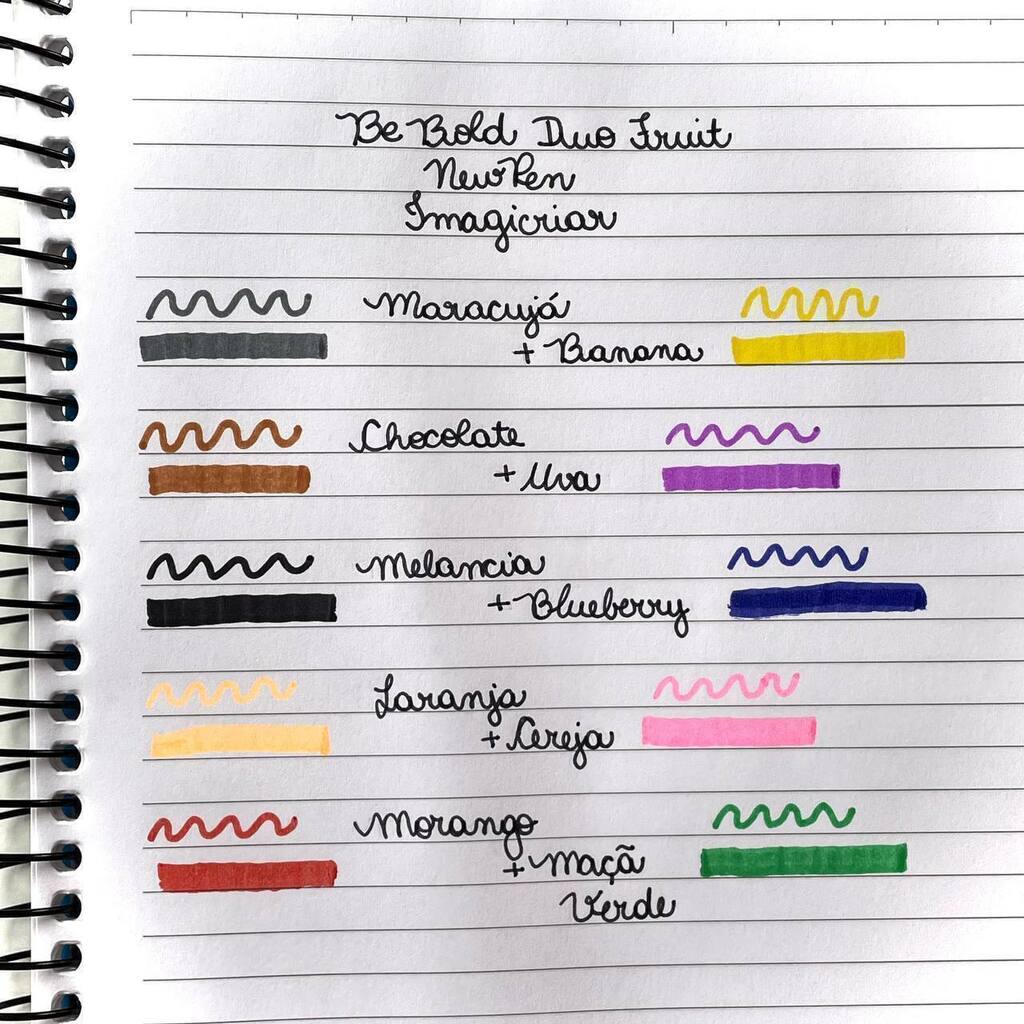 Be Bold Duo Fruit
NewPen
Imagicriar
Maracujá
+ Banana
Chocolate
+ Uva
Melancia
+ Blueberry
Laranja
+ Cereja
Morango
+ Maçã
Verde